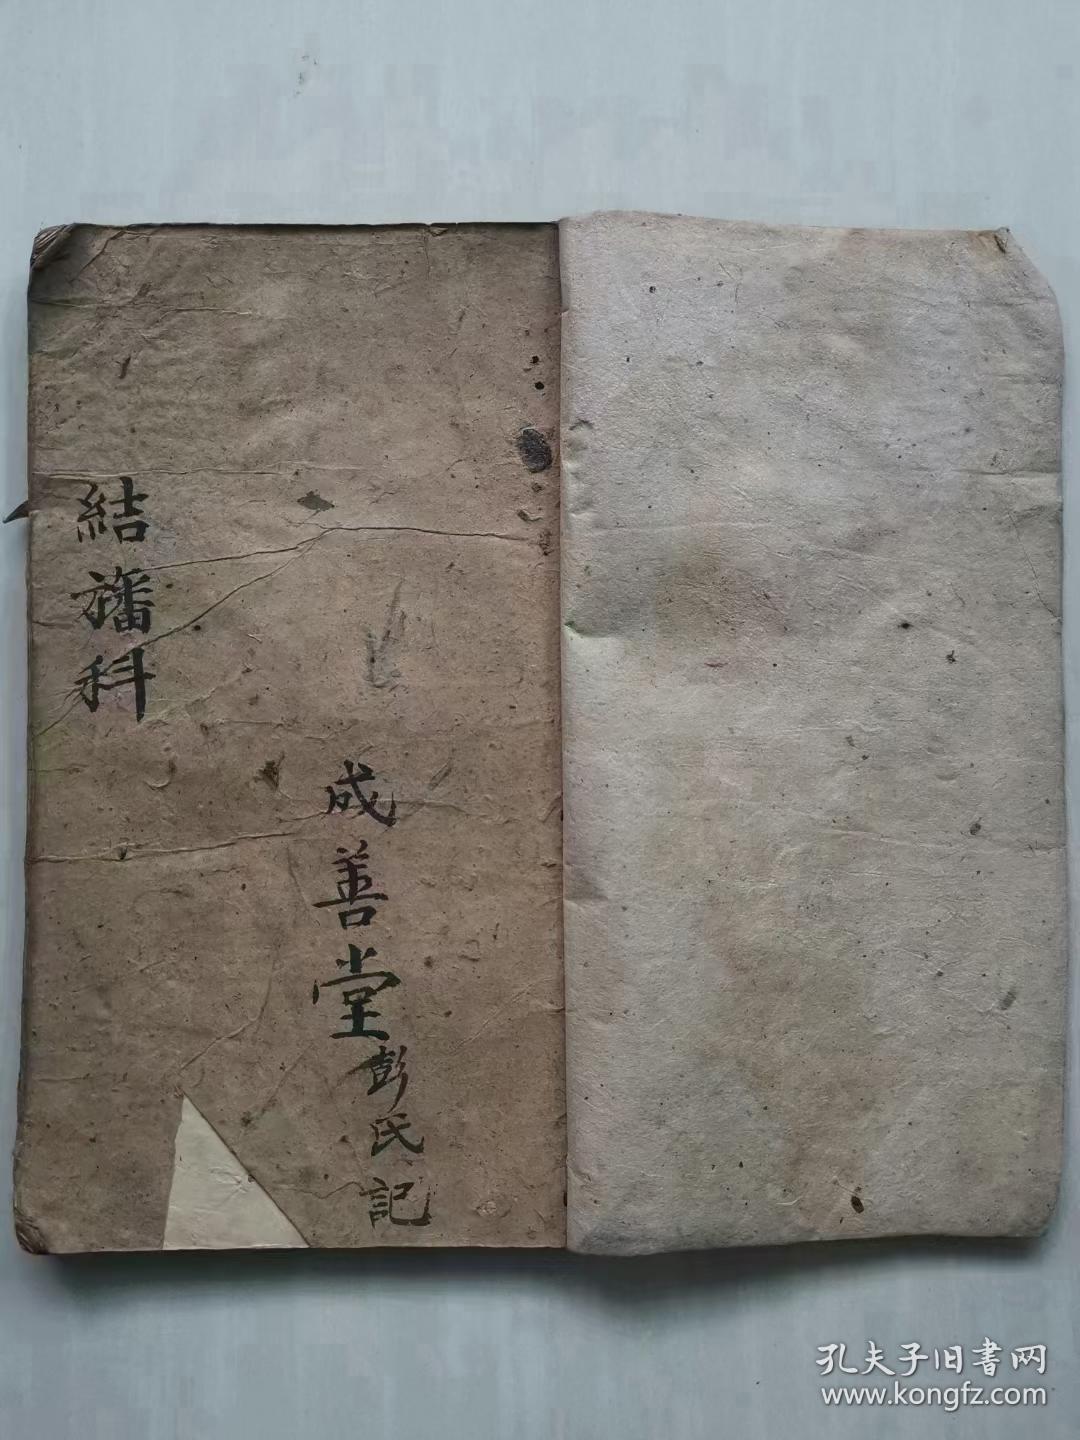 結旛科
成善堂彭氏記
孔夫子旧書网
www.kongfz.com